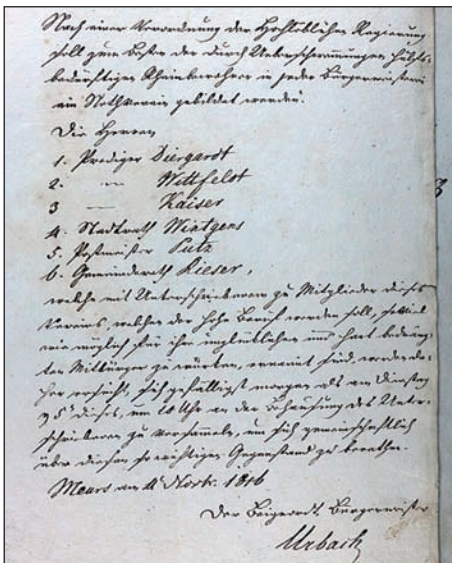 Nach einer Verordnung der Hochlöblichen Regierung
soll zum Besten der durch Ueberschwemmungen hülfs-
bedürftigen Rheinbewohner in jeder Bürgermeisterei
ein Nothverein gebildet werden.
Die Herren
1. Prediger Diergardt
2. — Wittfeldt
3 — Kaiser
4. Stadtrath Wintgens
5. Postmeister Putz
6. Gemeinderath Rieser,
welche mit Unterschriebenen zu Mitglieder dieses
Vereins, welchen der hohe Beruf werden soll, soviel
wie möglich für ihre unglücklichen und hart bedräng-
ten Mitbürger zu würken, ernannt sind, werden da-
her ersucht, sich gefälligst morgen als am Dienstag
5 dieses, um 10 Uhr in der Behausung des Unter-
schriebenen zu versammeln, um sich gemeinschaftlich
über diesen so wichtigen Gegenstand zu berathen.
Meurs am 4 Novb. 1816
Der Beigeordt. Bürgermeister
Urbach